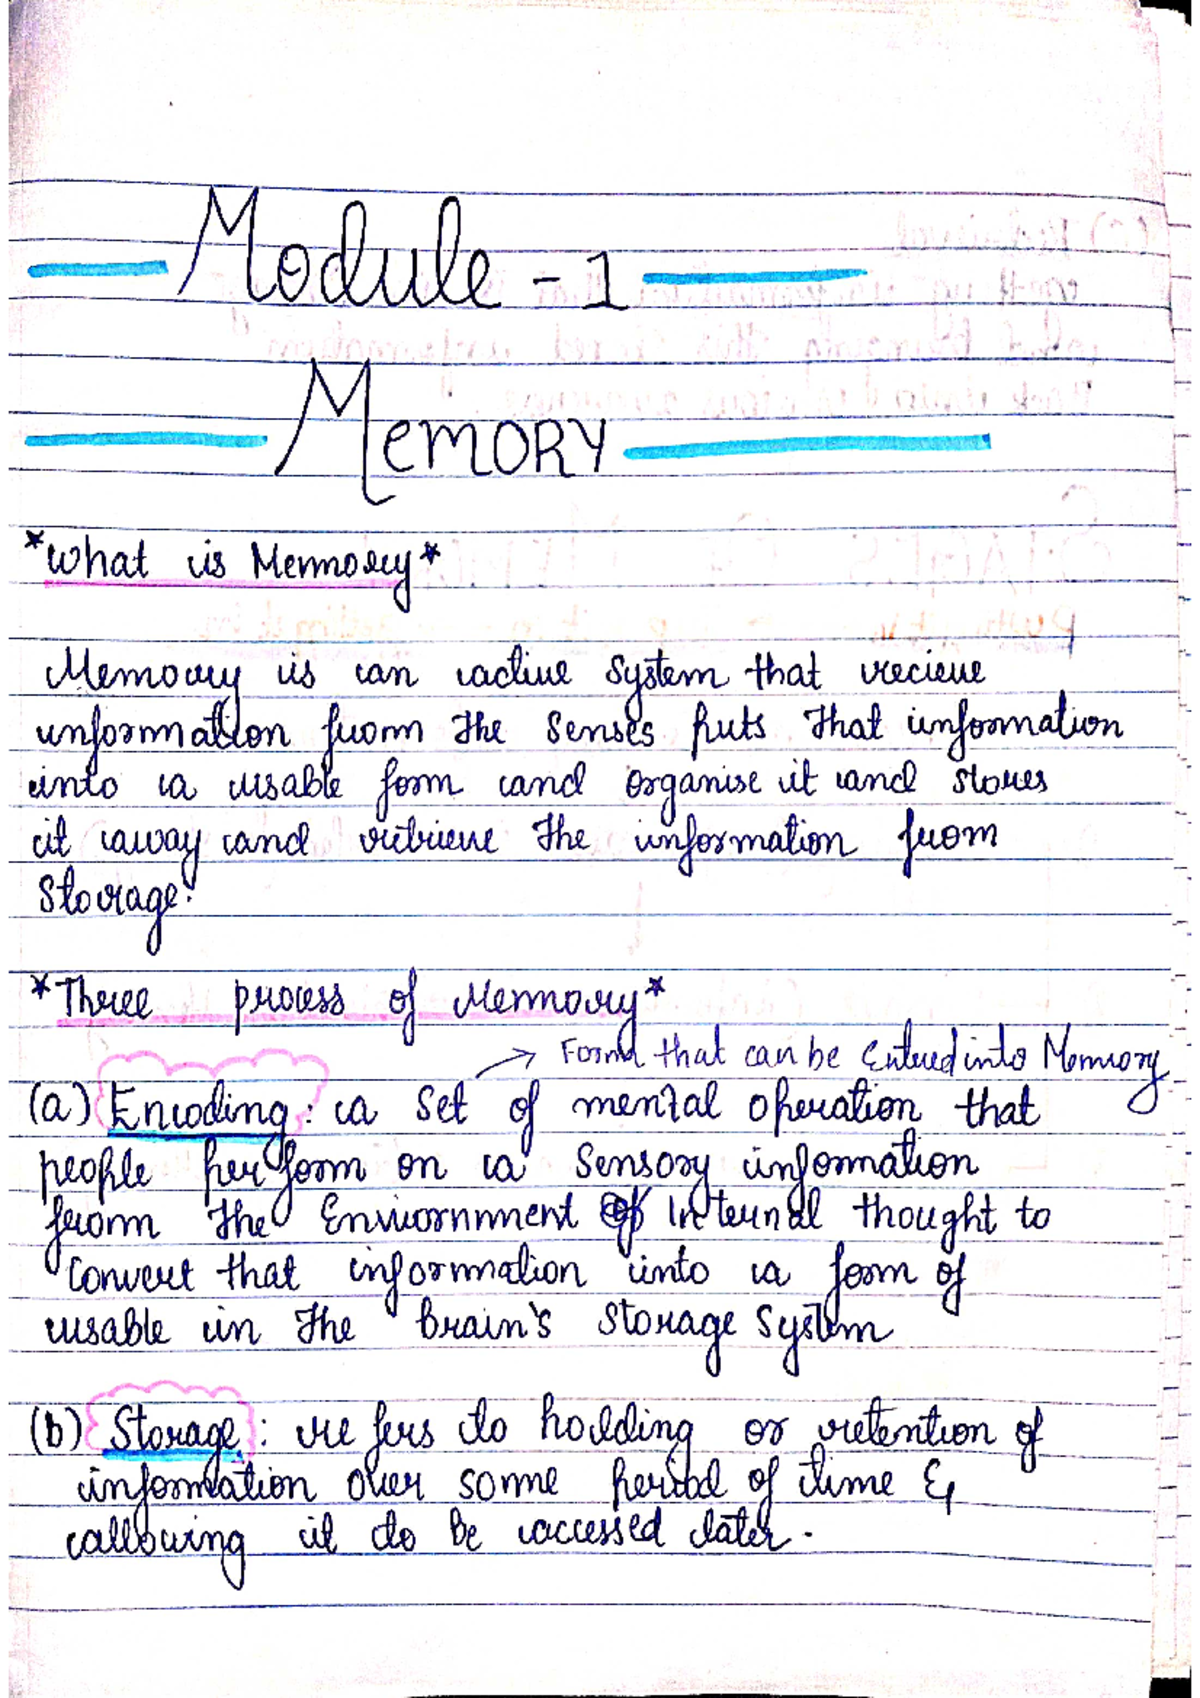 Module - 1
MEMORY
*What is Memory*
Memory is an active system that recieve
information from the senses puts that information
into a usable form and organise it and stores
it away and retrieve the information from
storage.
*Three process of Memory*
→ Form that can be Entered into Memory
(a) Encoding : a set of mental operation that
people perform on a sensory information
from the Enviornment of Internal thought to
convert that information into a form of
usable in the brain's storage system
(b) Storage : refers to holding or retention of
information over some period of time &
allowing it to be accessed later.